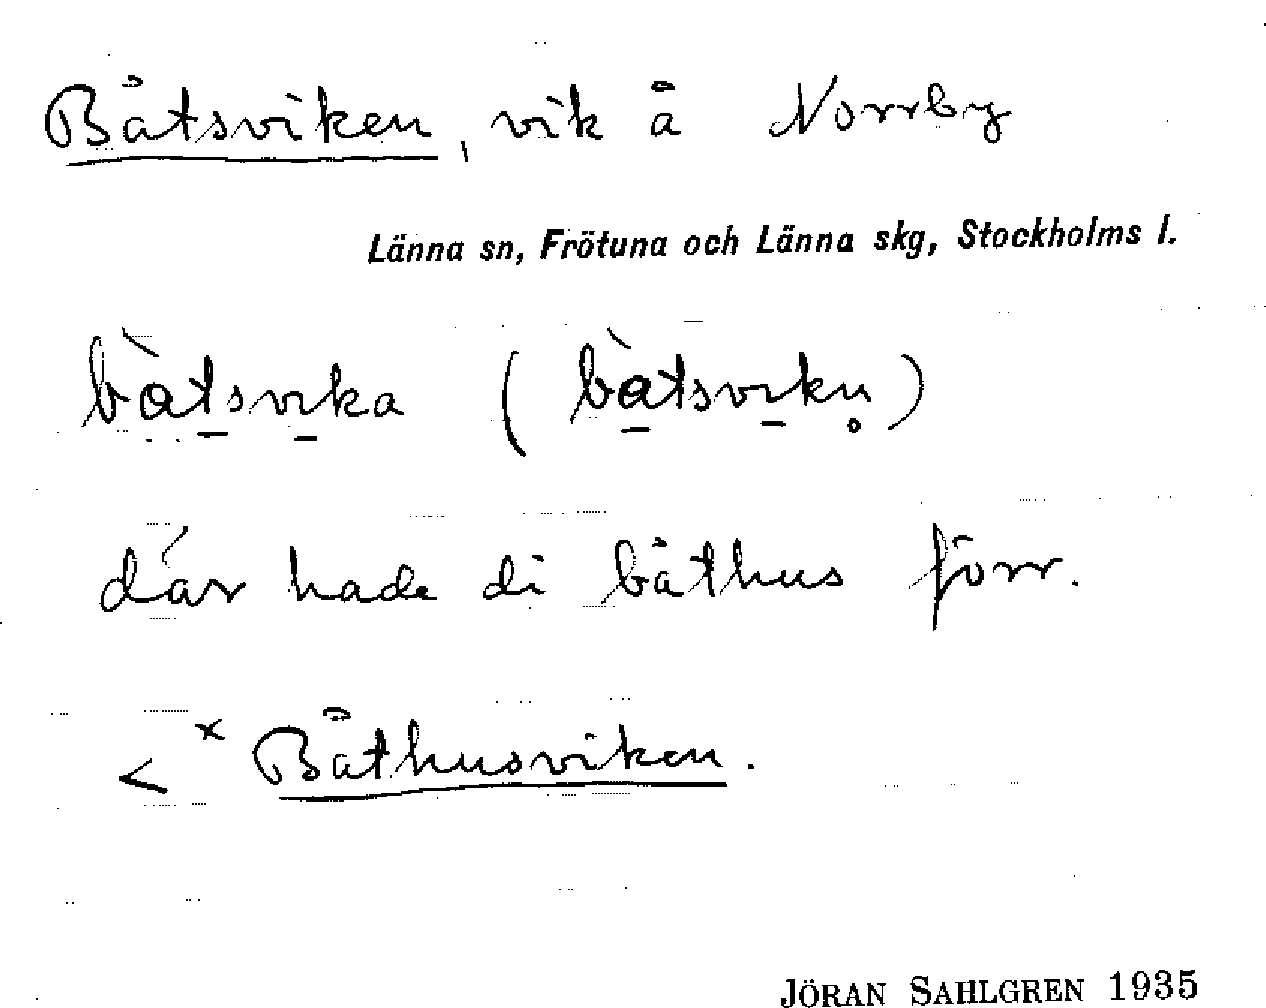 Båtsviken, vik å Norrby
Länna sn, Frötuna och Länna skg, Stockholms l.
bàtsvika (bàtsvikn̥)
där hade di båthus förr.
< × Båthusviken.
JÖRAN SAHLGREN 1935